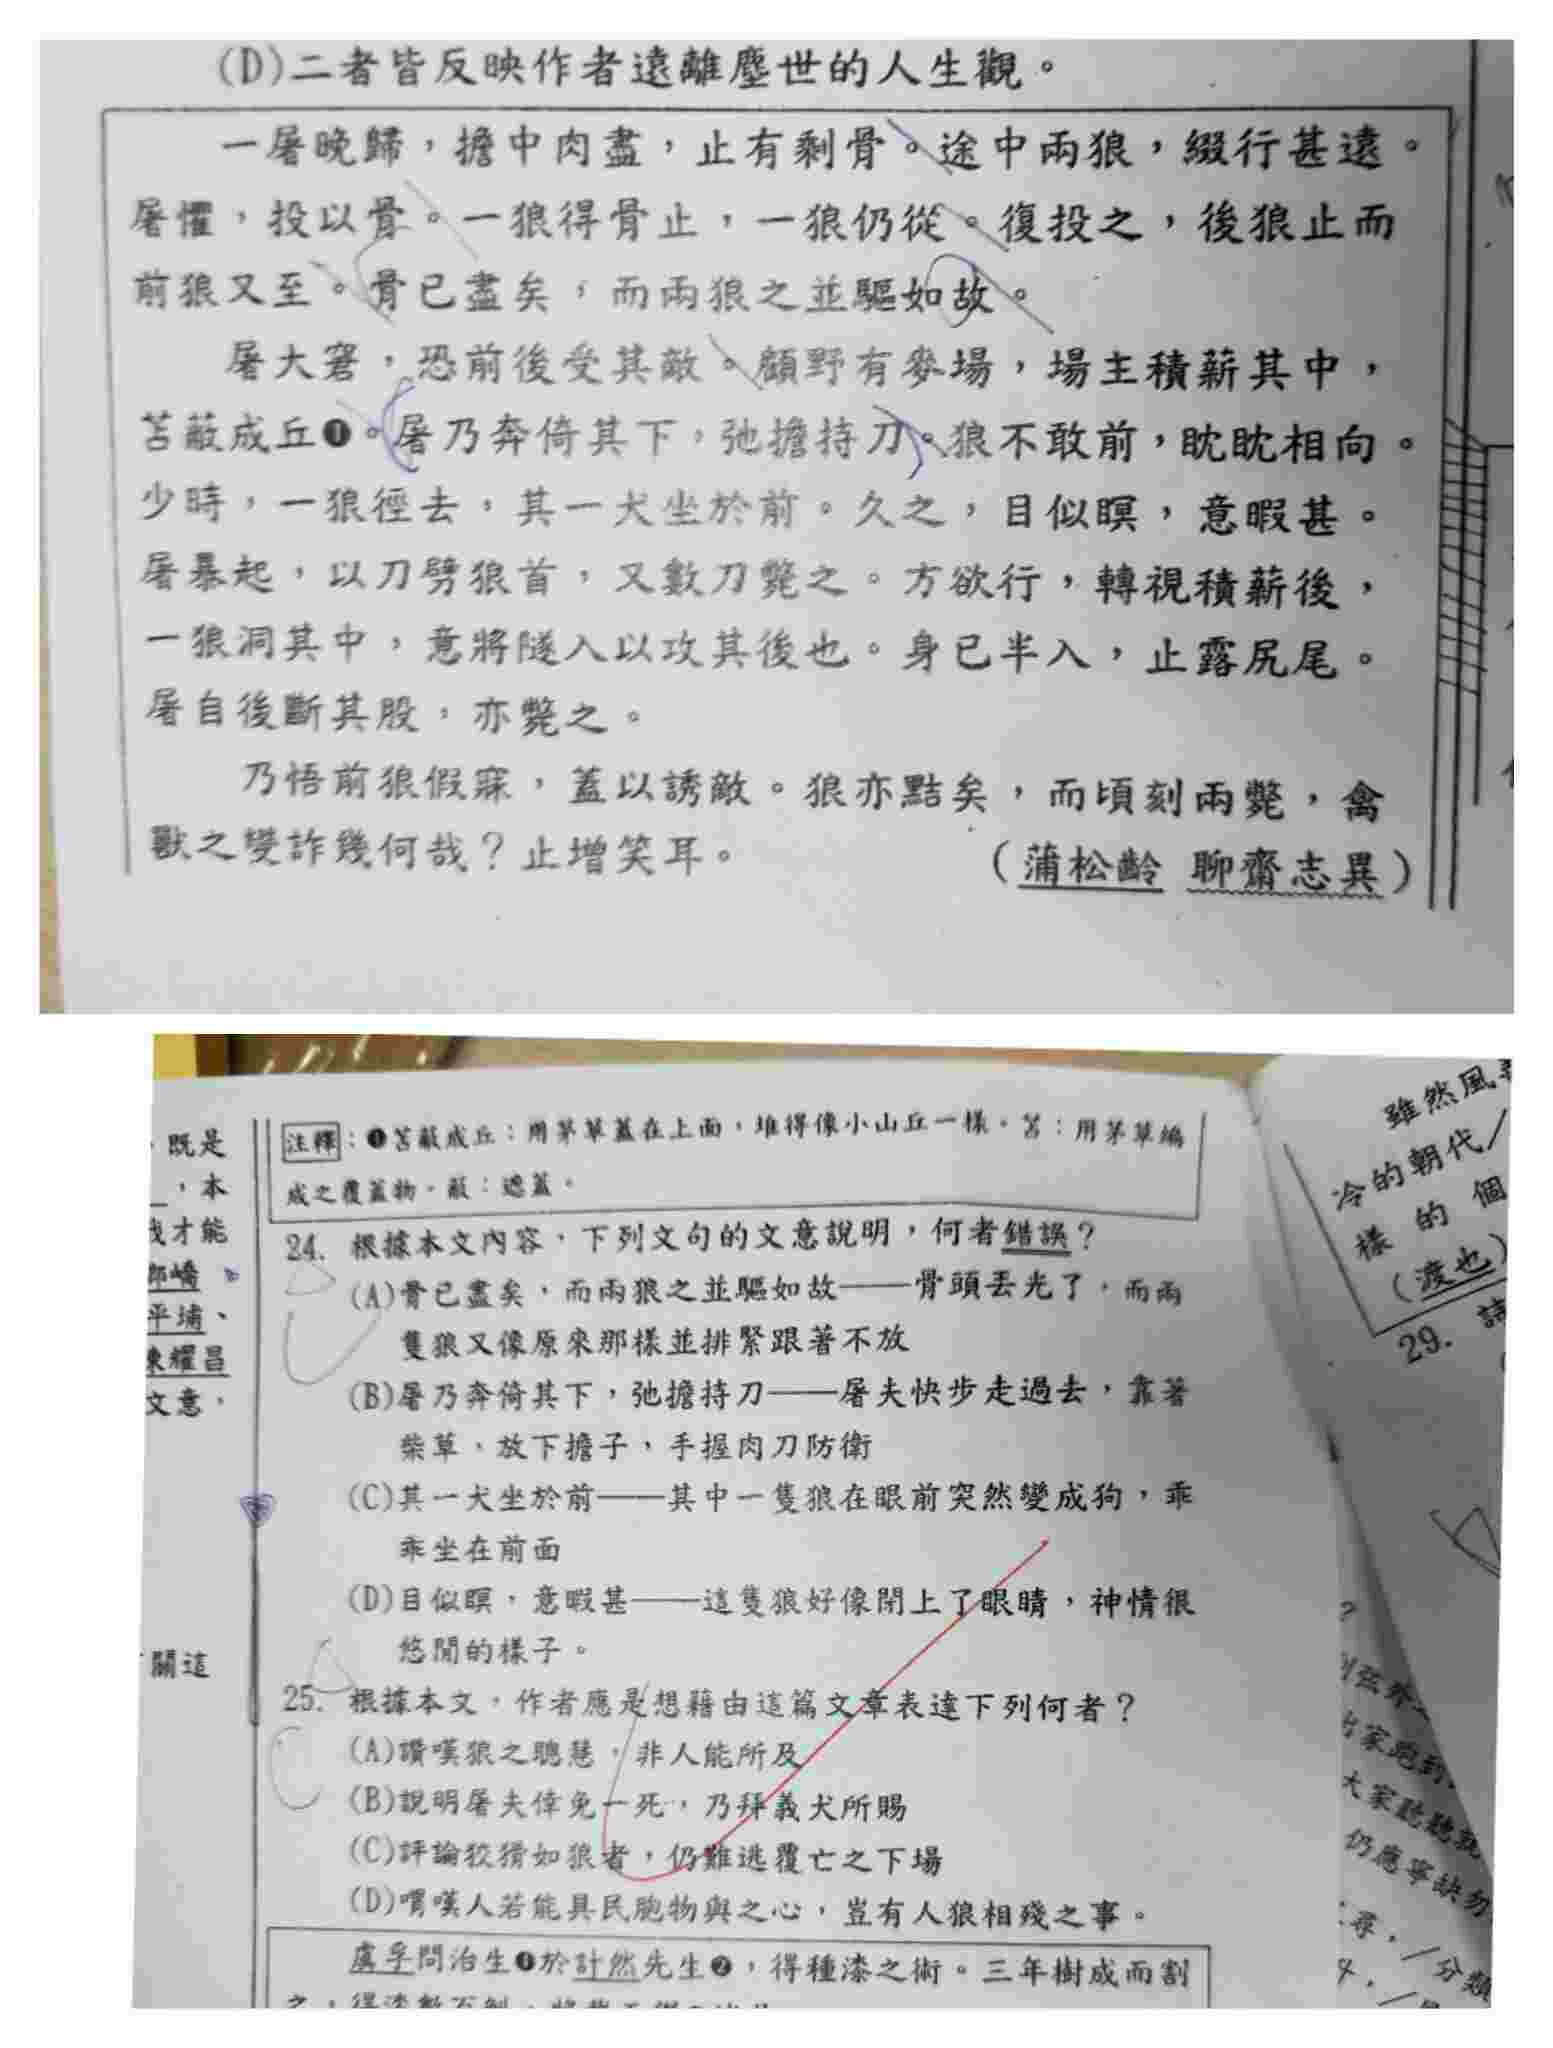 (D)二者皆反映作者遠離塵世的人生觀。
一屠晚歸，擔中肉盡，止有剩骨。途中兩狼，綴行甚遠。
屠懼，投以骨。一狼得骨止，一狼仍從。復投之，後狼止而
前狼又至。骨已盡矣，而兩狼之並驅如故。
屠大窘，恐前後受其敵。顧野有麥場，場主積薪其中，
苫蔽成丘❶。屠乃奔倚其下，弛擔持刀。狼不敢前，眈眈相向。
少時，一狼徑去，其一犬坐於前。久之，目似瞑，意暇甚。
屠暴起，以刀劈狼首，又數刀斃之。方欲行，轉視積薪後，
一狼洞其中，意將隧入以攻其後也。身已半入，止露尻尾。
屠自後斷其股，亦斃之。
乃悟前狼假寐，蓋以誘敵。狼亦黠矣，而頃刻兩斃，禽
獸之變詐幾何哉？止增笑耳。
（蒲松齡 聊齋志異）
注釋：❶苫蔽成丘：用茅草蓋在上面，堆得像小山丘一樣。苫：用茅草編
成之覆蓋物。蔽：遮蓋。
24. 根據本文內容，下列文句的文意說明，何者錯誤？
(A)骨已盡矣，而兩狼之並驅如故——骨頭丟光了，而兩
隻狼又像原來那樣並排緊跟著不放
(B)屠乃奔倚其下，弛擔持刀——屠夫快步走過去，靠著
柴草，放下擔子，手握肉刀防衛
(C)其一犬坐於前——其中一隻狼在眼前突然變成狗，乖
乖坐在前面
(D)目似瞑，意暇甚——這隻狼好像閉上了眼睛，神情很
悠閒的樣子。
25. 根據本文，作者應是想藉由這篇文章表達下列何者？
(A)讚嘆狼之聰慧，非人能所及
(B)說明屠夫倖免一死，乃拜義犬所賜
(C)評論狡猾如狼者，仍難逃覆亡之下場
(D)喟嘆人若能具民胞物與之心，豈有人狼相殘之事。
虞孚問治生❶於計然先生❷，得種漆之術。三年樹成而割
既是
，本
我才能
平埔、
陳耀昌
文意，
關這
雖然風
冷的朝代／
樣的個
（渡也）
29.
出家跑到
大家聽聽
仍應寧缺勿
／分類